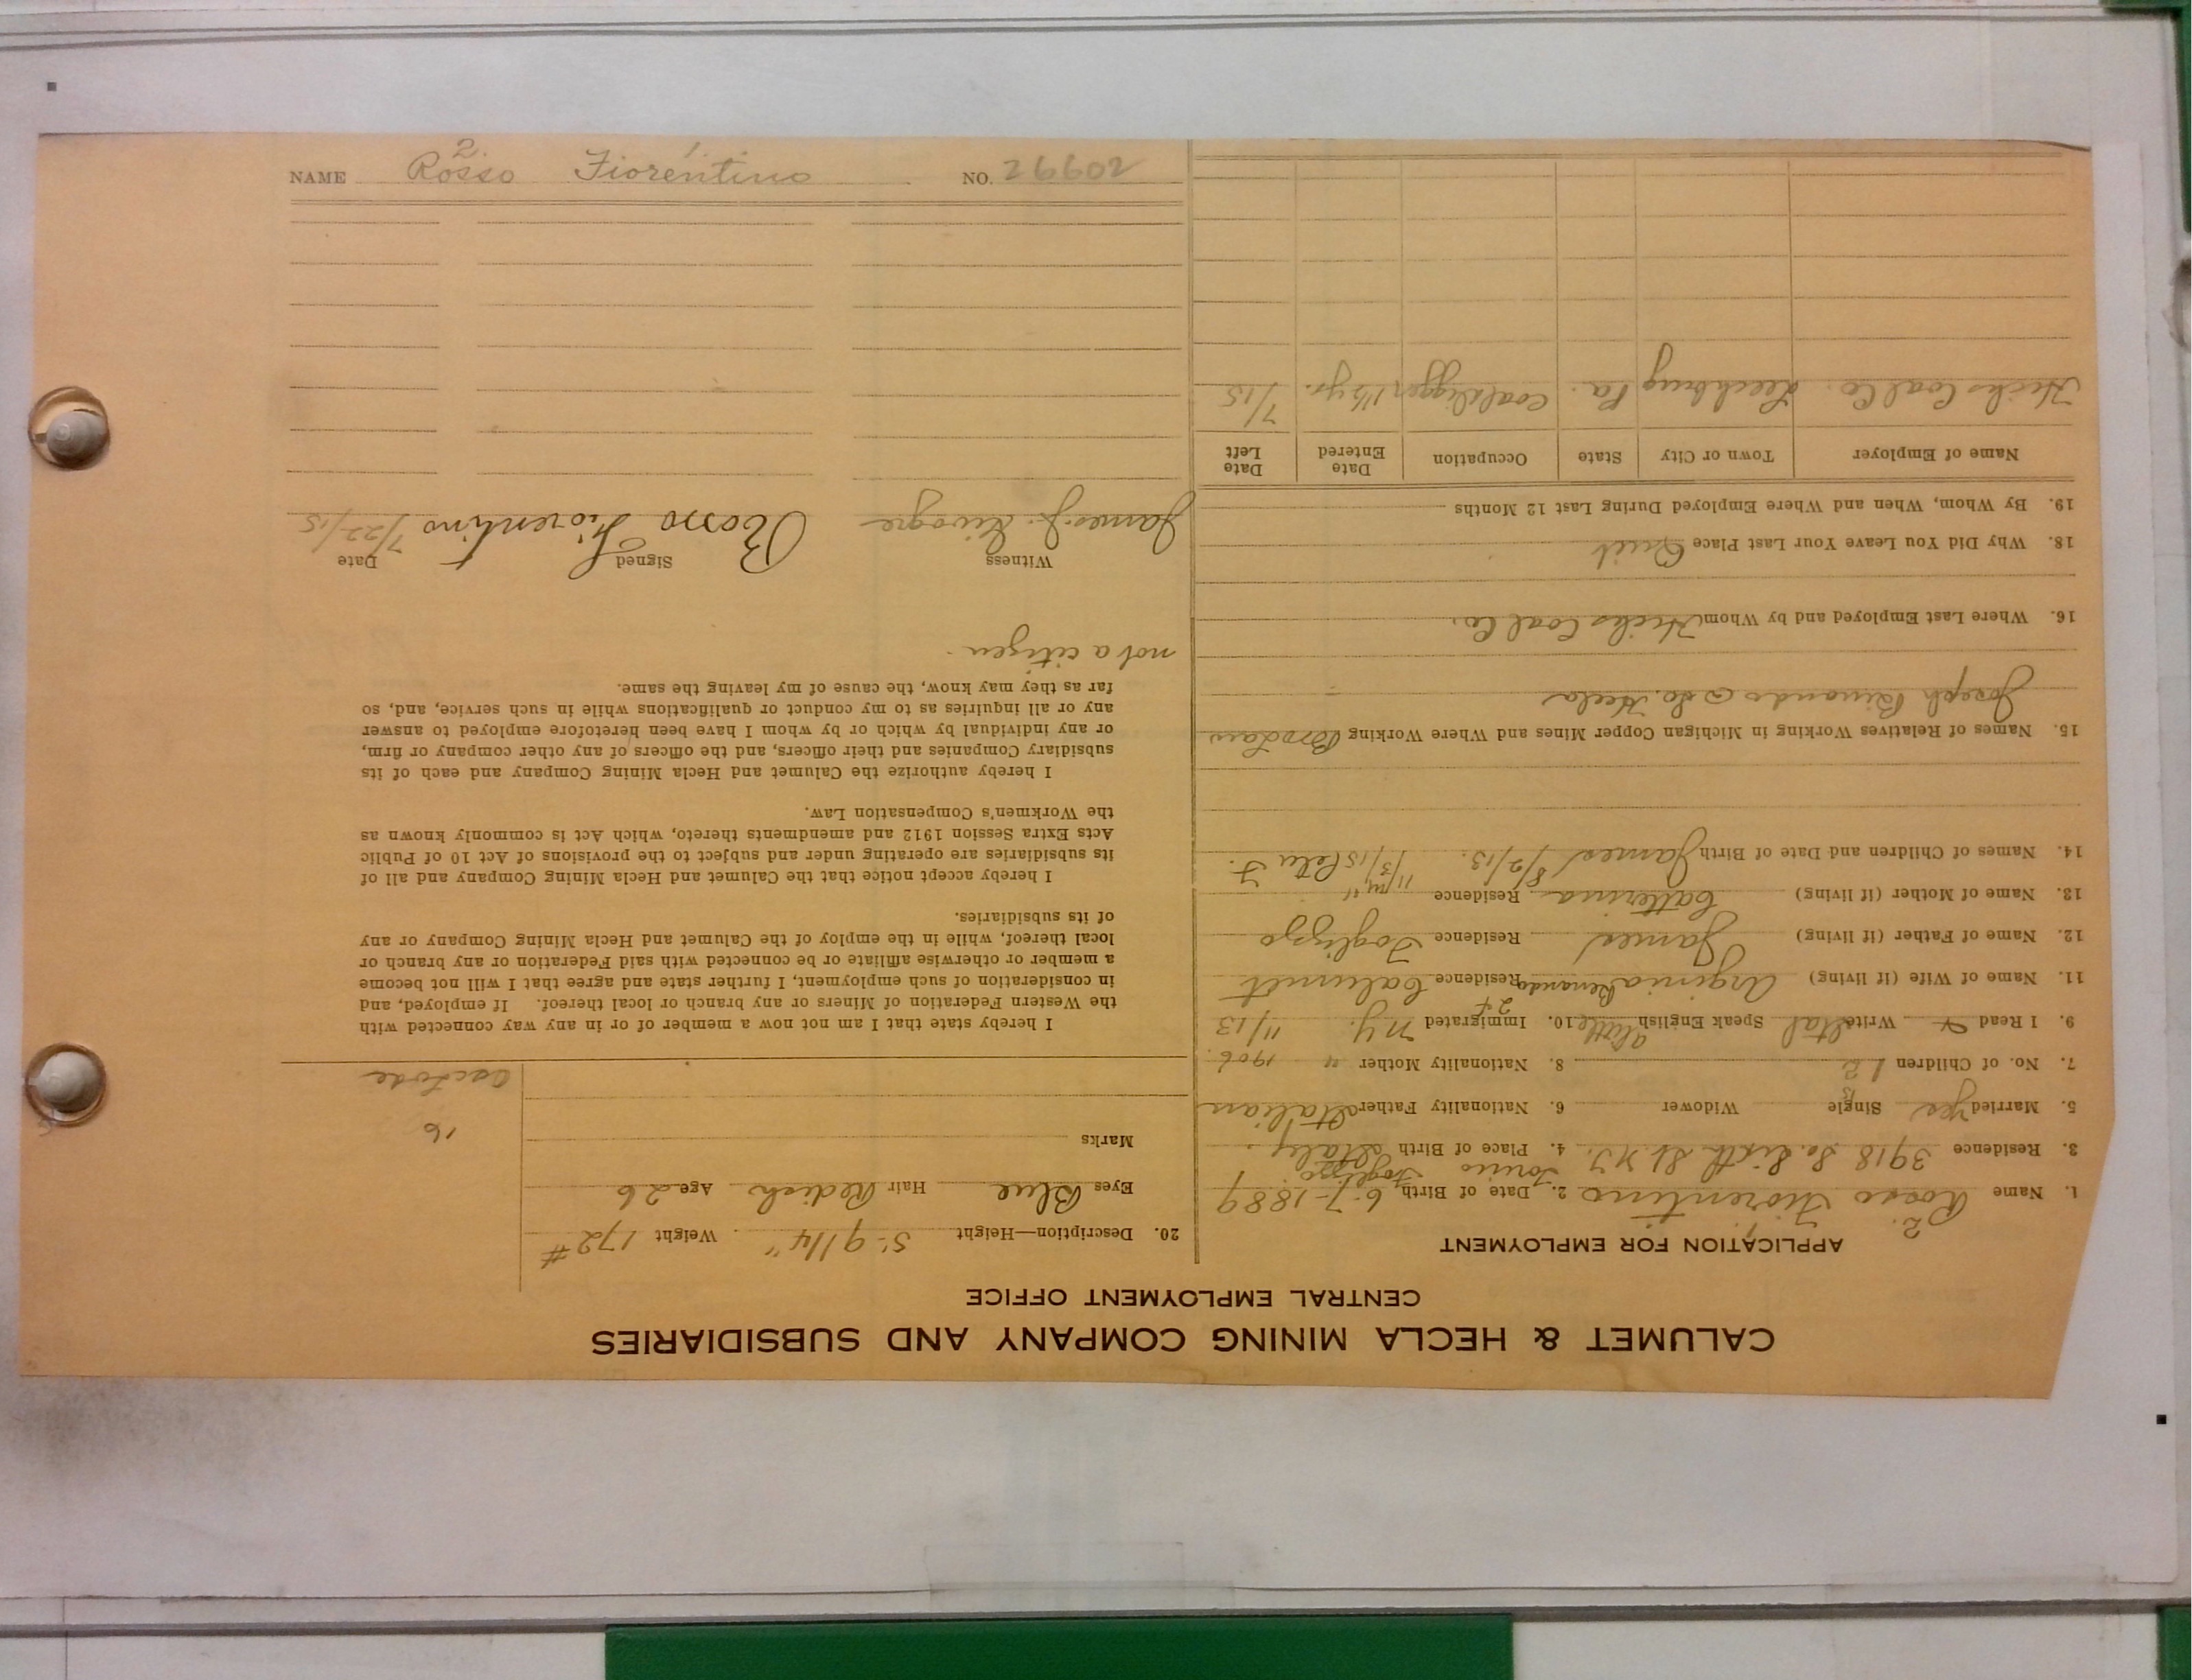 CALUMET & HECLA MINING COMPANY AND SUBSIDIARIES
CENTRAL EMPLOYMENT OFFICE
APPLICATION FOR EMPLOYMENT
2. 1
1. Name Rosso Fiorentino 2. Date of Birth 6-7-1889
Torino Foglizzo
3. Residence 3918 So. Sixth St N.J. 4. Place of Birth Italy
5. Married yes Single Widower 6. Nationality Father Italian
7. No. of Children 1 2 8. Nationality Mother " 1906
9. I Read & Write Ital Speak English a little 10. Immigrated N.Y. 11/13
11. Name of Wife (if living) Arginia Benando 24 Residence Calumet
12. Name of Father (if living) James Residence Foglizzo
13. Name of Mother (if living) Catterina Residence "
14. Names of Children and Date of Birth James 8/2/13. 11/3/15
15. Names of Relatives Working in Michigan Copper Mines and Where Working Bro Law
Joseph Binando So. Hecla
16. Where Last Employed and by Whom Hicks Coal Co.
18. Why Did You Leave Your Last Place Quit
19. By Whom, When and Where Employed During Last 12 Months
Name of Employer Town or City State Occupation Date Entered Date Left
Hicks Coal Co. Leechburg Pa. Coal digger 1 1/2 yr. 7/15
20. Description—Height 5'-9 1/4" Weight 172#
Eyes Blue Hair Redish Age 26
Marks
16
I hereby state that I am not now a member of or in any way connected with
the Western Federation of Miners or any branch or local thereof. If employed, and
in consideration of such employment, I further state and agree that I will not become
a member or otherwise affiliate or be connected with said Federation or any branch or
local thereof, while in the employ of the Calumet and Hecla Mining Company or any
of its subsidiaries.
I hereby accept notice that the Calumet and Hecla Mining Company and all of
its subsidiaries are operating under and subject to the provisions of Act 10 of Public
Acts Extra Session 1912 and amendments thereto, which Act is commonly known as
the Workmen's Compensation Law.
I hereby authorize the Calumet and Hecla Mining Company and each of its
subsidiary Companies and their officers, and the officers of any other company or firm,
or any individual by which or by whom I have been heretofore employed to answer
any or all inquiries as to my conduct or qualifications while in such service, and, so
far as they may know, the cause of my leaving the same.
not a citizen.
Witness Signed Date
James J. Rosso Fiorentino 7/22/15
2. 1
NAME Rosso Fiorentino NO. 26602